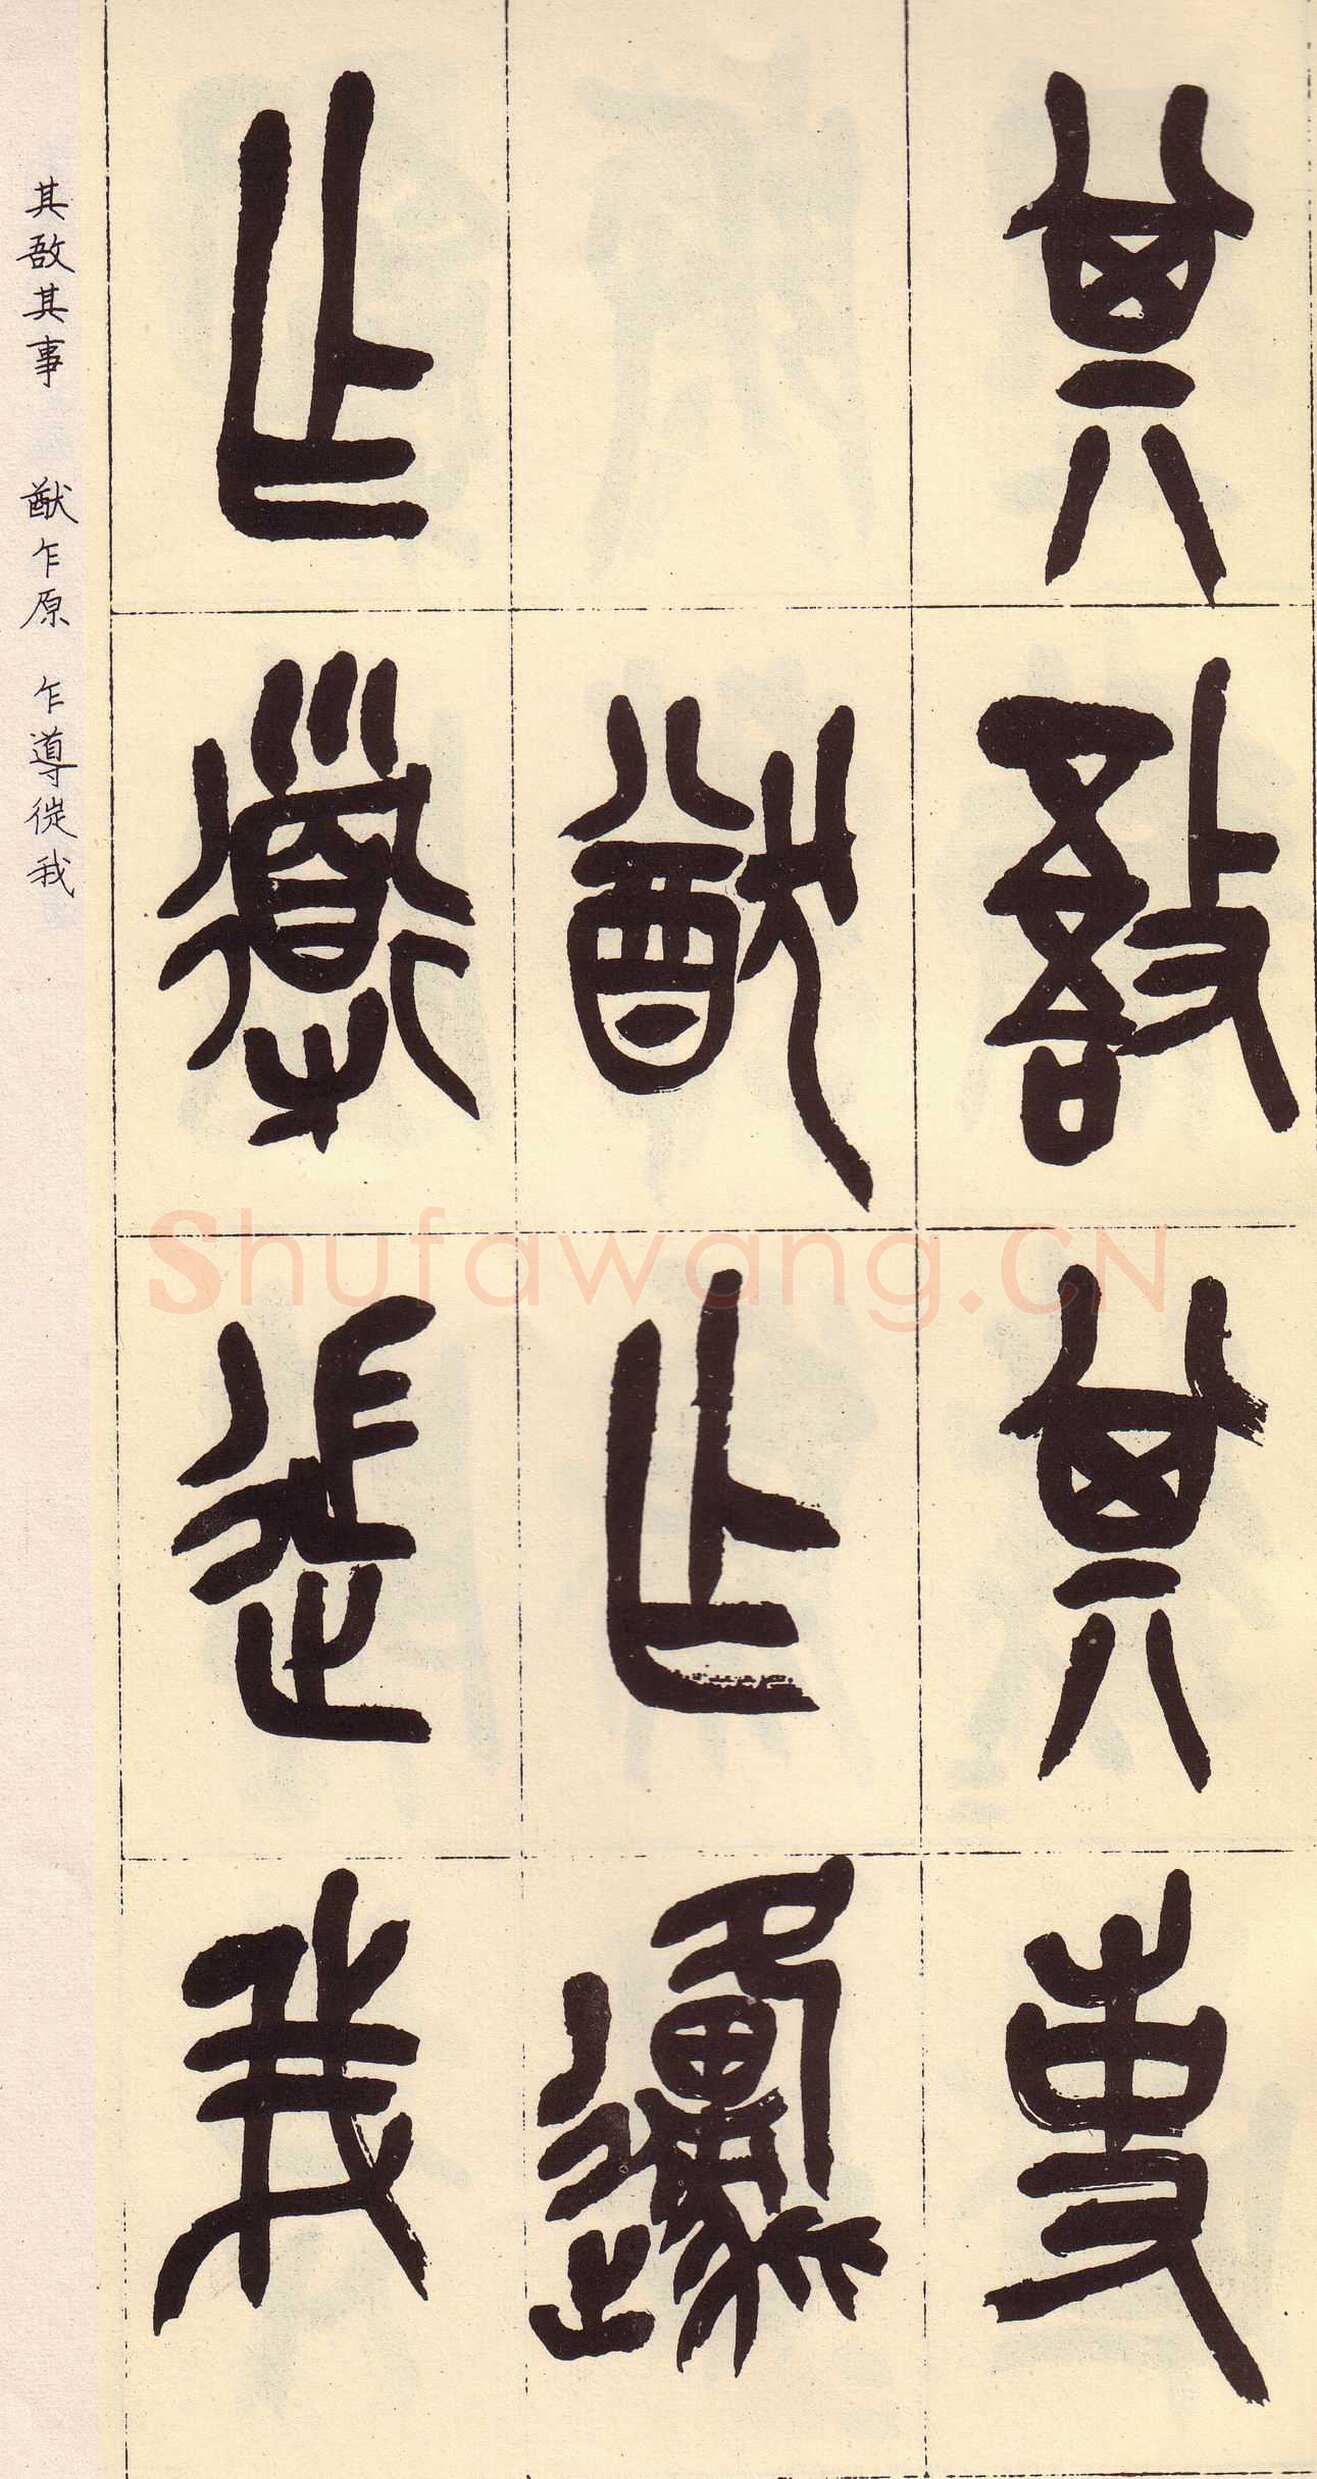 其敔其事
猷乍邍
乍導我
其敔其事 猷乍原 乍導我
Shufawang.CN